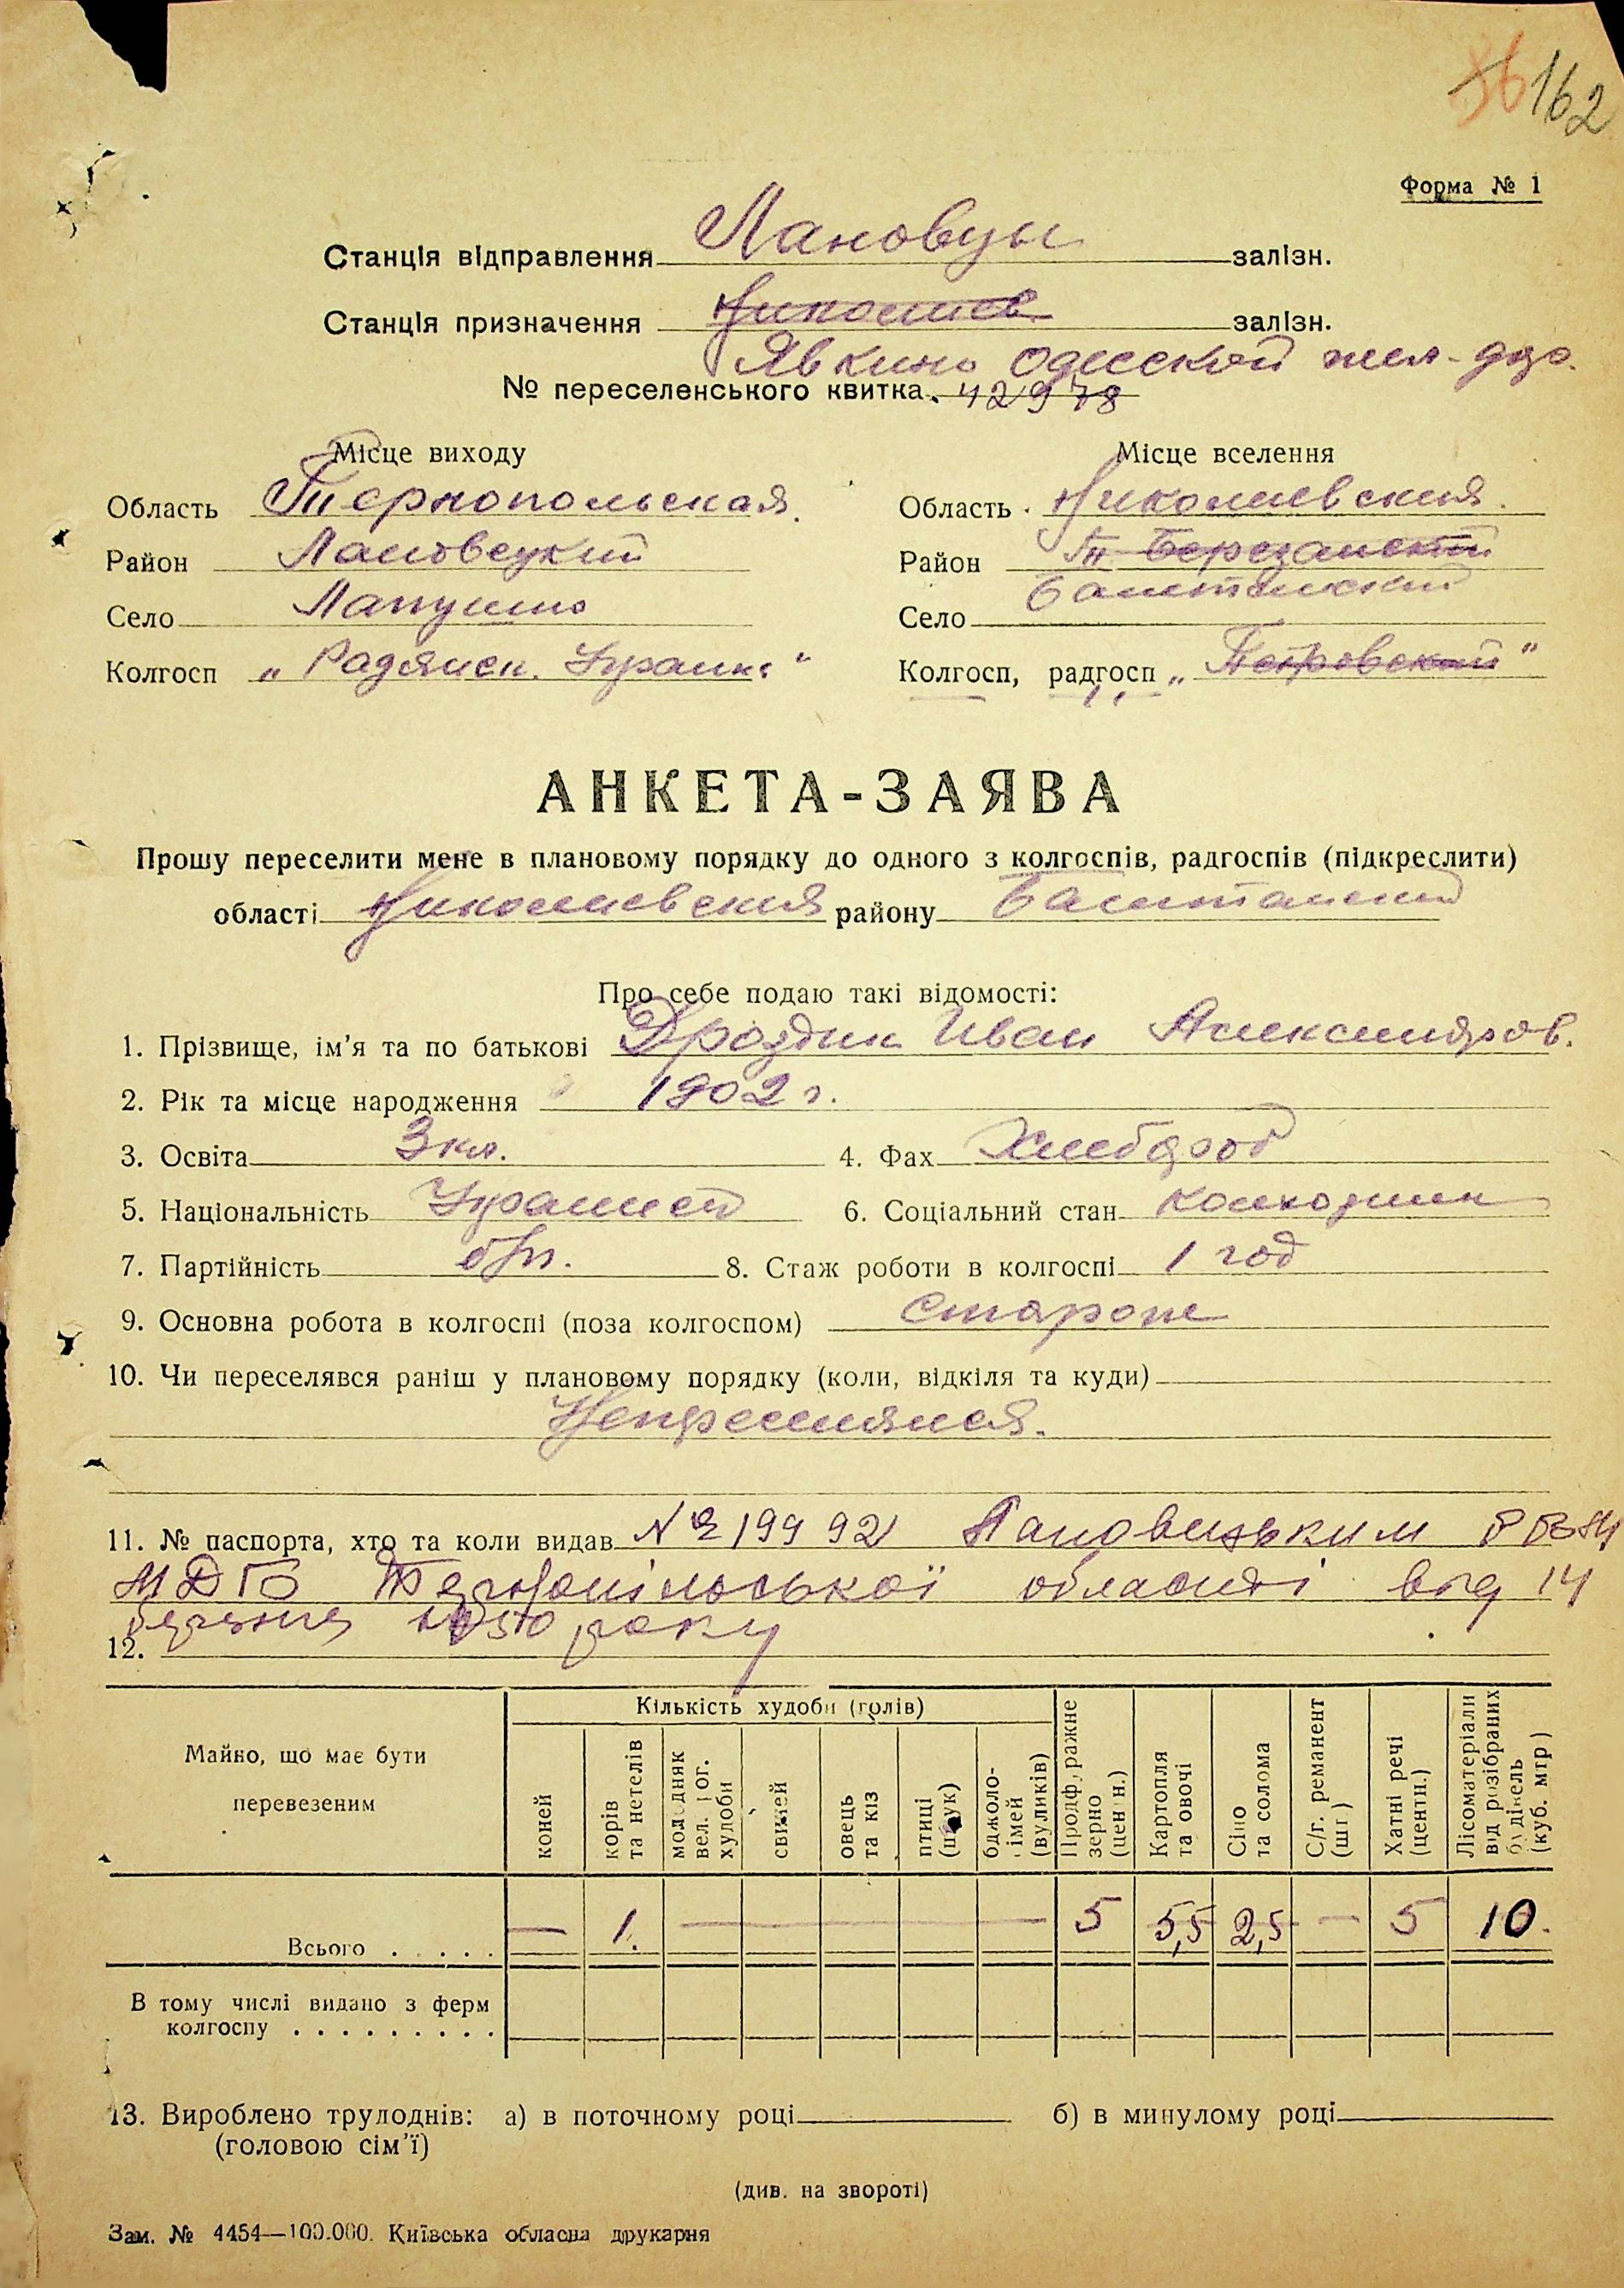 162
Форма № 1
Станція відправлення Лановцы залізн.
Станція призначення Николаев залізн.
Явкино Одесской жел-дор.
№ переселенського квитка. 42978
Місце виходу Місце вселення
Область Тернопольская Область Николаевская
Район Лановецкий Район Березанский
Баштанский
Село Лапушно Село
Колгосп „Радянск. Украина" Колгосп, радгосп „Петровский"
АНКЕТА-ЗАЯВА
Прошу переселити мене в плановому порядку до одного з колгоспів, радгоспів (підкреслити)
області Николаевская району Баштанский
Про себе подаю такі відомості:
1. Прізвище, ім'я та по батькові Дроздик Иван Александров.
2. Рік та місце народження 1902 г.
3. Освіта 3 кл. 4. Фах Хлебороб
5. Національність Украинец 6. Соціальний стан колхозник
7. Партійність б/п. 8. Стаж роботи в колгоспі 1 год
9. Основна робота в колгоспі (поза колгоспом) сторож
10. Чи переселявся раніш у плановому порядку (коли, відкіля та куди)
Непереселялся.
11. № паспорта, хто та коли видав № 219992 Лановецьким
МДБ Тернопільської області від 14
1950 року
12.
Майно, що має бути перевезеним
Кількість худоби (голів)
коней
корів та нетелів
молодняк вел. рог. худоби
свиней
овець та кіз
птиці (штук)
бджолосімей (вуликів)
Продфуражне зерно (центн.)
Картопля та овочі
Сіно та солома
С/г. реманент (шт)
Хатні речі (центн.)
Лісоматеріали від розібраних будівель (куб. мтр)
Всього . . . . . — 1. — 5 5,5 2,5 — 5 10.
В тому числі видано з ферм
колгоспу . . . . . . . . .
13. Вироблено трудоднів: а) в поточному році б) в минулому році
(головою сім'ї)
(див. на звороті)
Зам. № 4454—100.000. Київська обласна друкарня